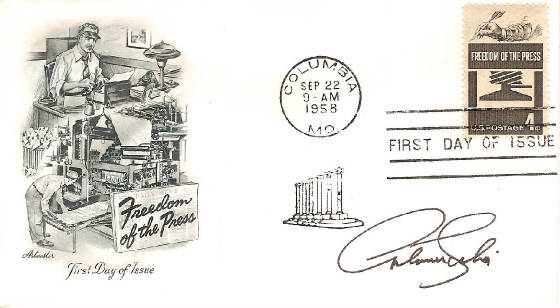 Freedom
of the Press
First Day of Issue
COLUMBIA
SEP 22
9-AM
1958
MO.
FREEDOM OF THE PRESS
4¢
U.S. POSTAGE
FIRST DAY OF ISSUE